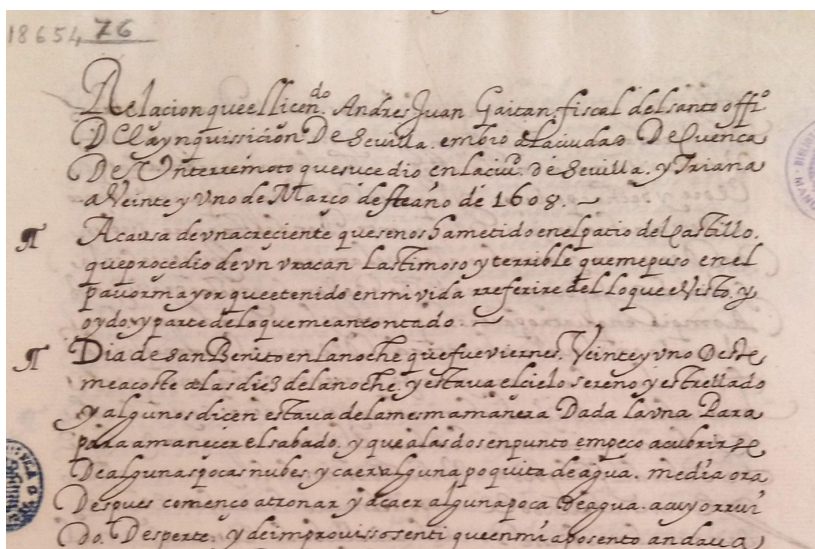 18654 76
Relacion que el licen.do Andres Juan Gaitan fiscal del santo offi.o
De la ynquissición De Sevilla. embio a la ciudad De Cuenca
De Un terremoto que sucedio en la ciu.d de Sevilla. y Triana
a Veinte y Uno de Março deste año de 1608.
A causa de una creciente que se nos ha metido en el patio del Castillo.
que procedio de un uracan lastimoso y terrible que me puso en el
pavor mayor que e tenido en mi vida rreferire del lo que e Visto. y
oydo. y parte de lo que me an contado.
Dia de san Benito en la noche que fue viernes. Veinte y uno Deste
me acoste a las diez de la noche. y estava el cielo sereno y estrellado
y algunos dicen estava de la mesma manera Dada la una Para
para amanecer el sabado. y que a las dos en punto empeço a cubrirse
De algunas pocas nubes. y caer alguna poquita de agua. media ora
Despues començo a tronar y a caer alguna poca De agua. a cuyo rrui
do. Desperte. y de improvisso senti que en mi aposento andava